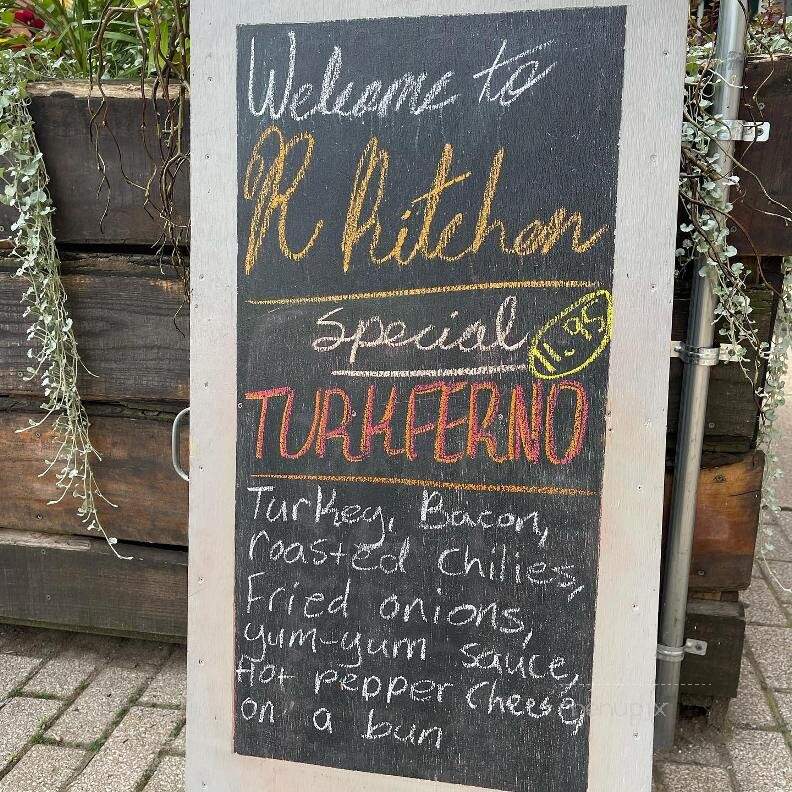 Welcome to
R Kitchen
Special 11.95
TURKFERNO
Turkey, Bacon,
roasted chilies,
Fried onions,
yum-yum sauce,
Hot pepper Cheese,
on a bun
menupix